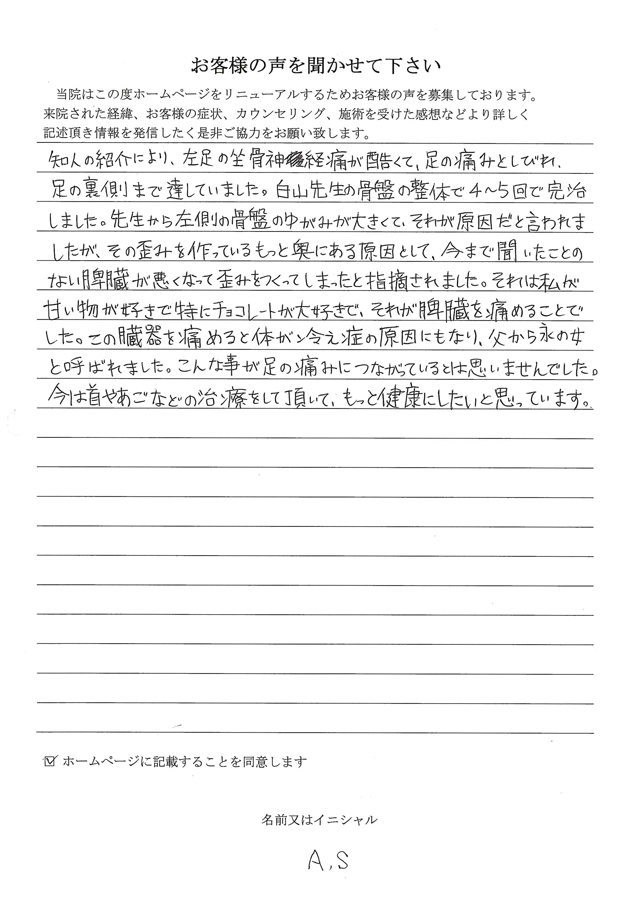 お客様の声を聞かせて下さい
当院はこの度ホームページをリニューアルするためお客様の声を募集しております。
来院された経緯、お客様の症状、カウンセリング、施術を受けた感想などより詳しく
記述頂き情報を発信したく是非ご協力をお願い致します。
知人の紹介により、左足の坐骨神経痛が酷くて、足の痛みとしびれ、
足の裏側まで達していました。白山先生の骨盤の整体で4〜5回で完治
しました。先生から左側の骨盤のゆがみが大きくて、それが原因だと言われま
したが、その歪みを作っているもっと奥にある原因として、今まで聞いたことの
ない脾臓が悪くなって歪みをつくってしまったと指摘されました。それは私が
甘い物が好きで特にチョコレートが大好きで、それが脾臓を痛めることで
した。この臓器を痛めると体が冷え症の原因にもなり、父から氷の女
と呼ばれました。こんな事が足の痛みにつながっているとは思いませんでした。
今は首やあごなどの治療をして頂いて、もっと健康にしたいと思っています。
☑ ホームページに記載することを同意します
名前又はイニシャル
A,S